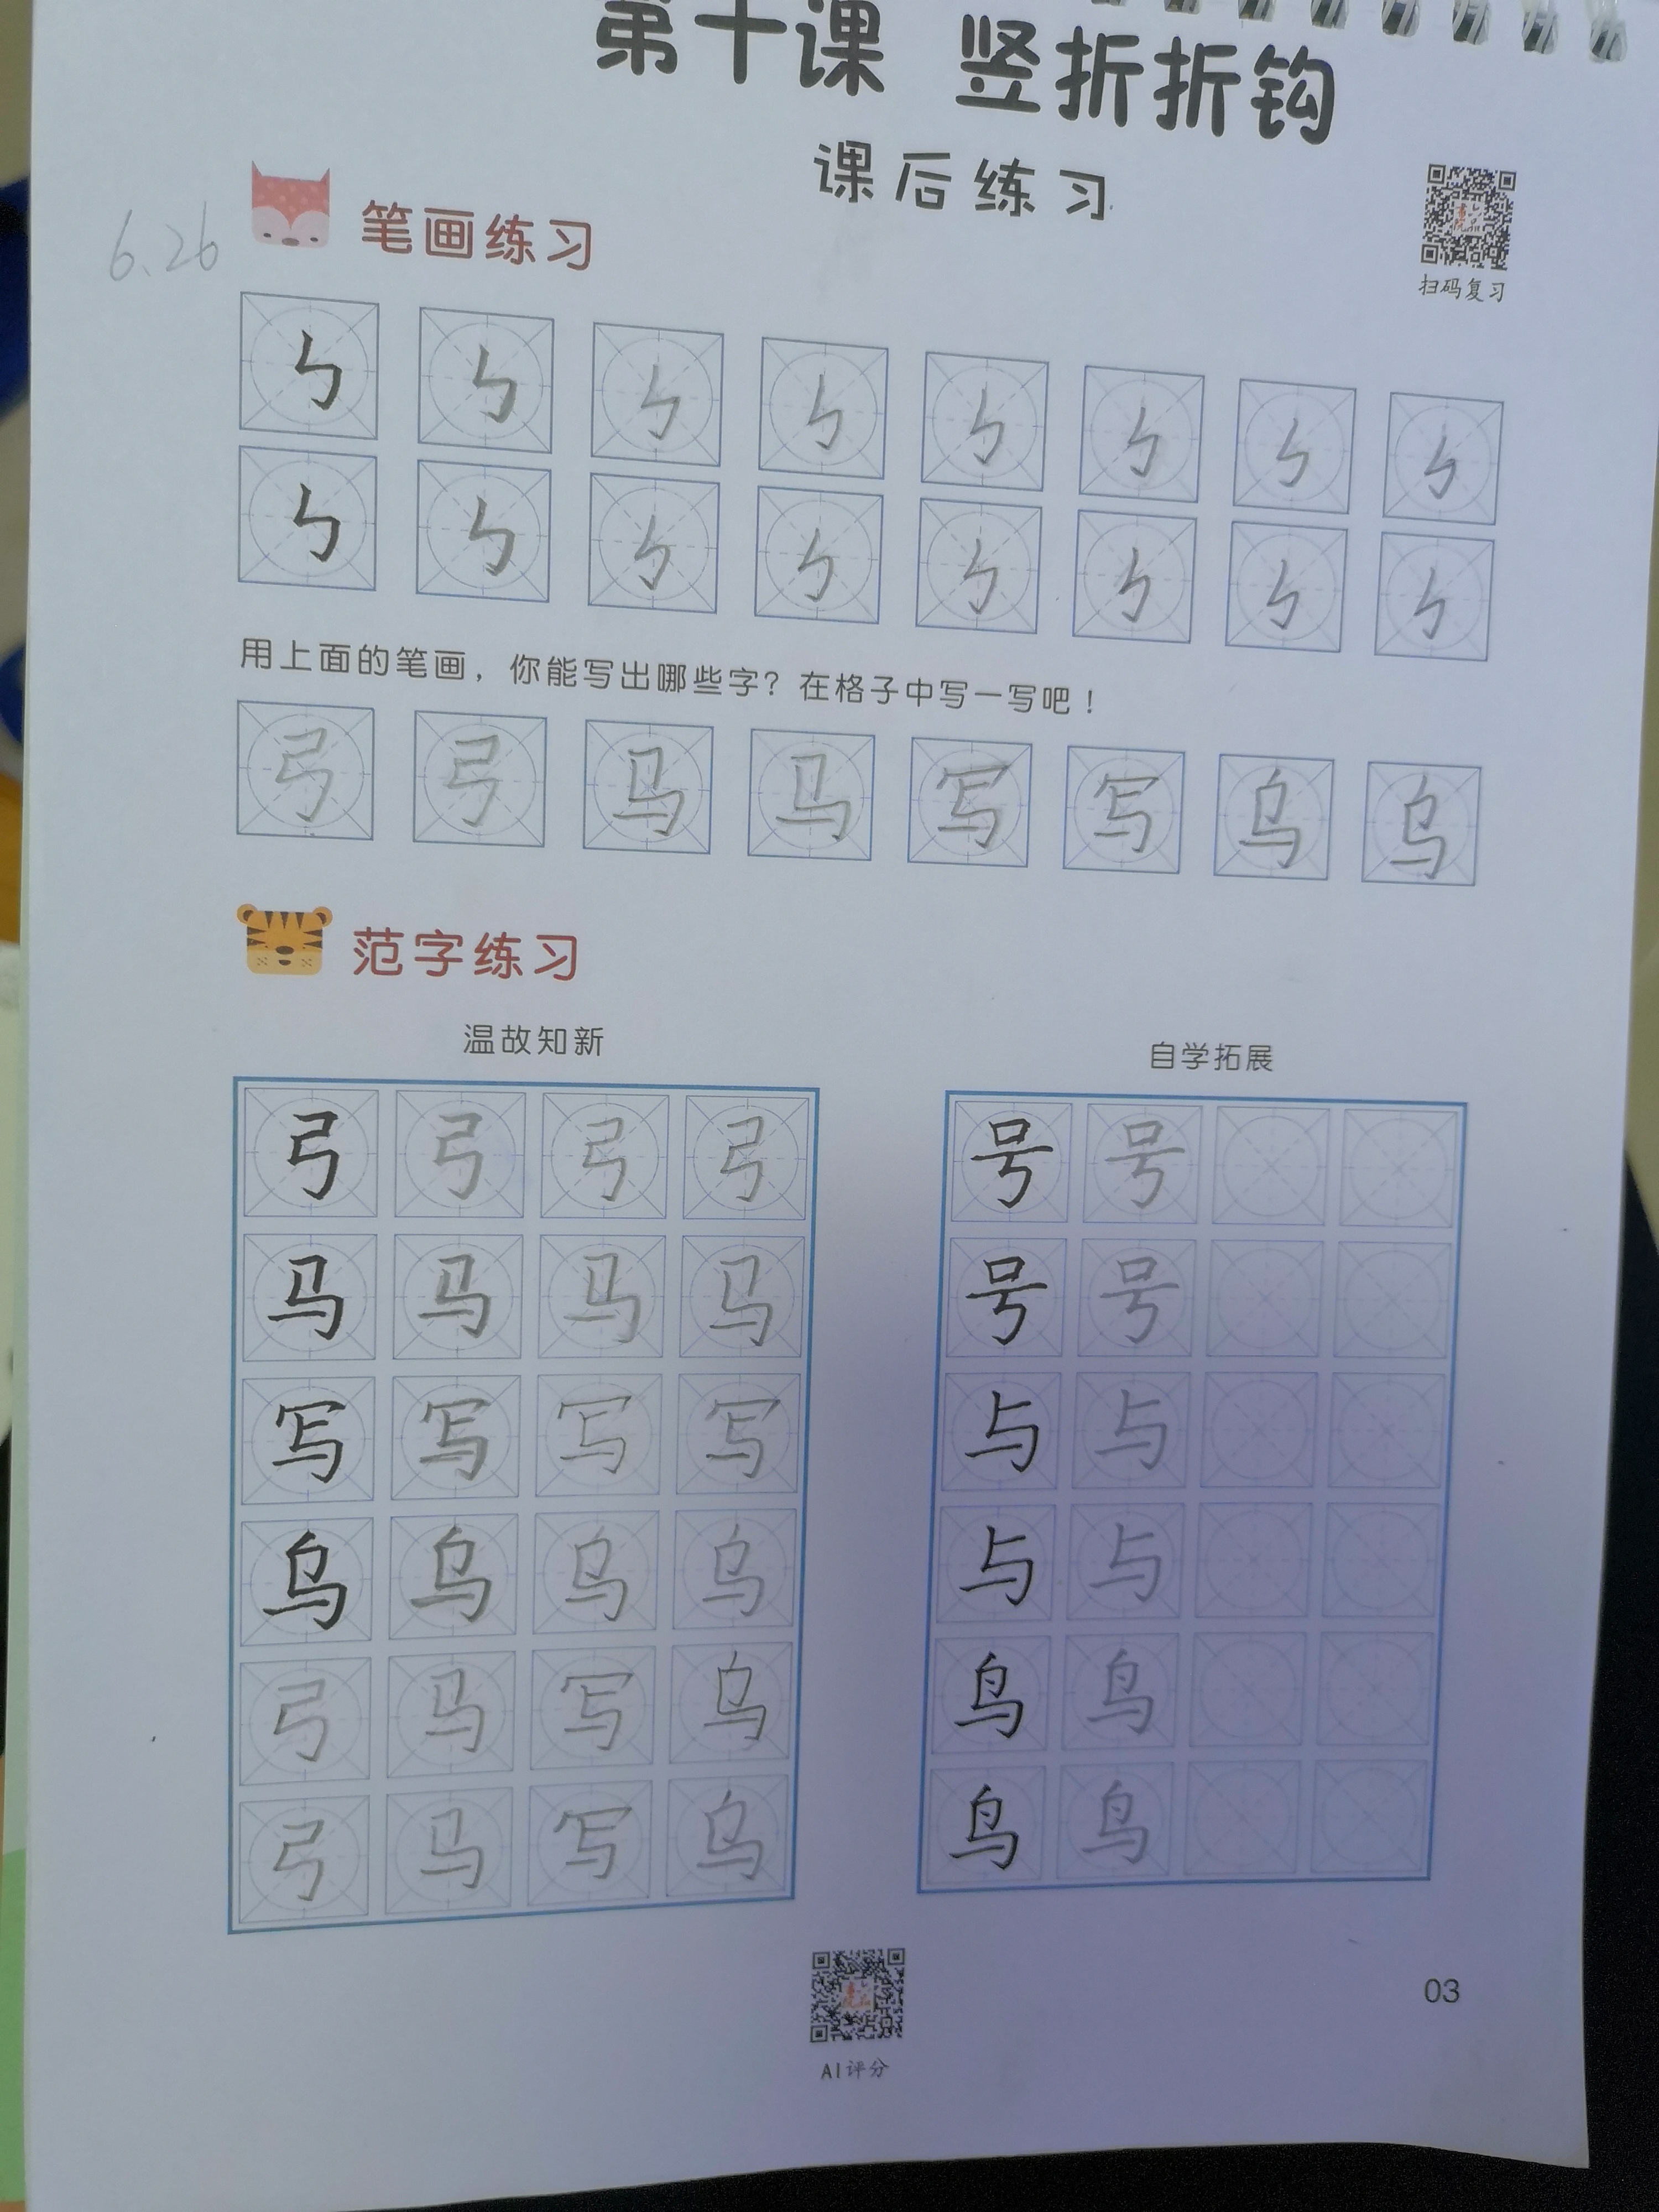 第十课 竖折折钩
课后练习
扫码复习
6.26
笔画练习
ㄣ ㄣ ㄣ ㄣ ㄣ ㄣ ㄣ ㄣ
ㄣ ㄣ ㄣ ㄣ ㄣ ㄣ ㄣ ㄣ
用上面的笔画，你能写出哪些字？在格子中写一写吧！
弓 弓 马 马 写 写 乌 乌
范字练习
温故知新
弓 弓 弓 弓
马 马 马 马
写 写 写 写
乌 乌 乌 乌
弓 马 写 乌
弓 马 写 乌
自学拓展
号 号
号 号
与 与
与 与
鸟 鸟
鸟 鸟
AI评分
03